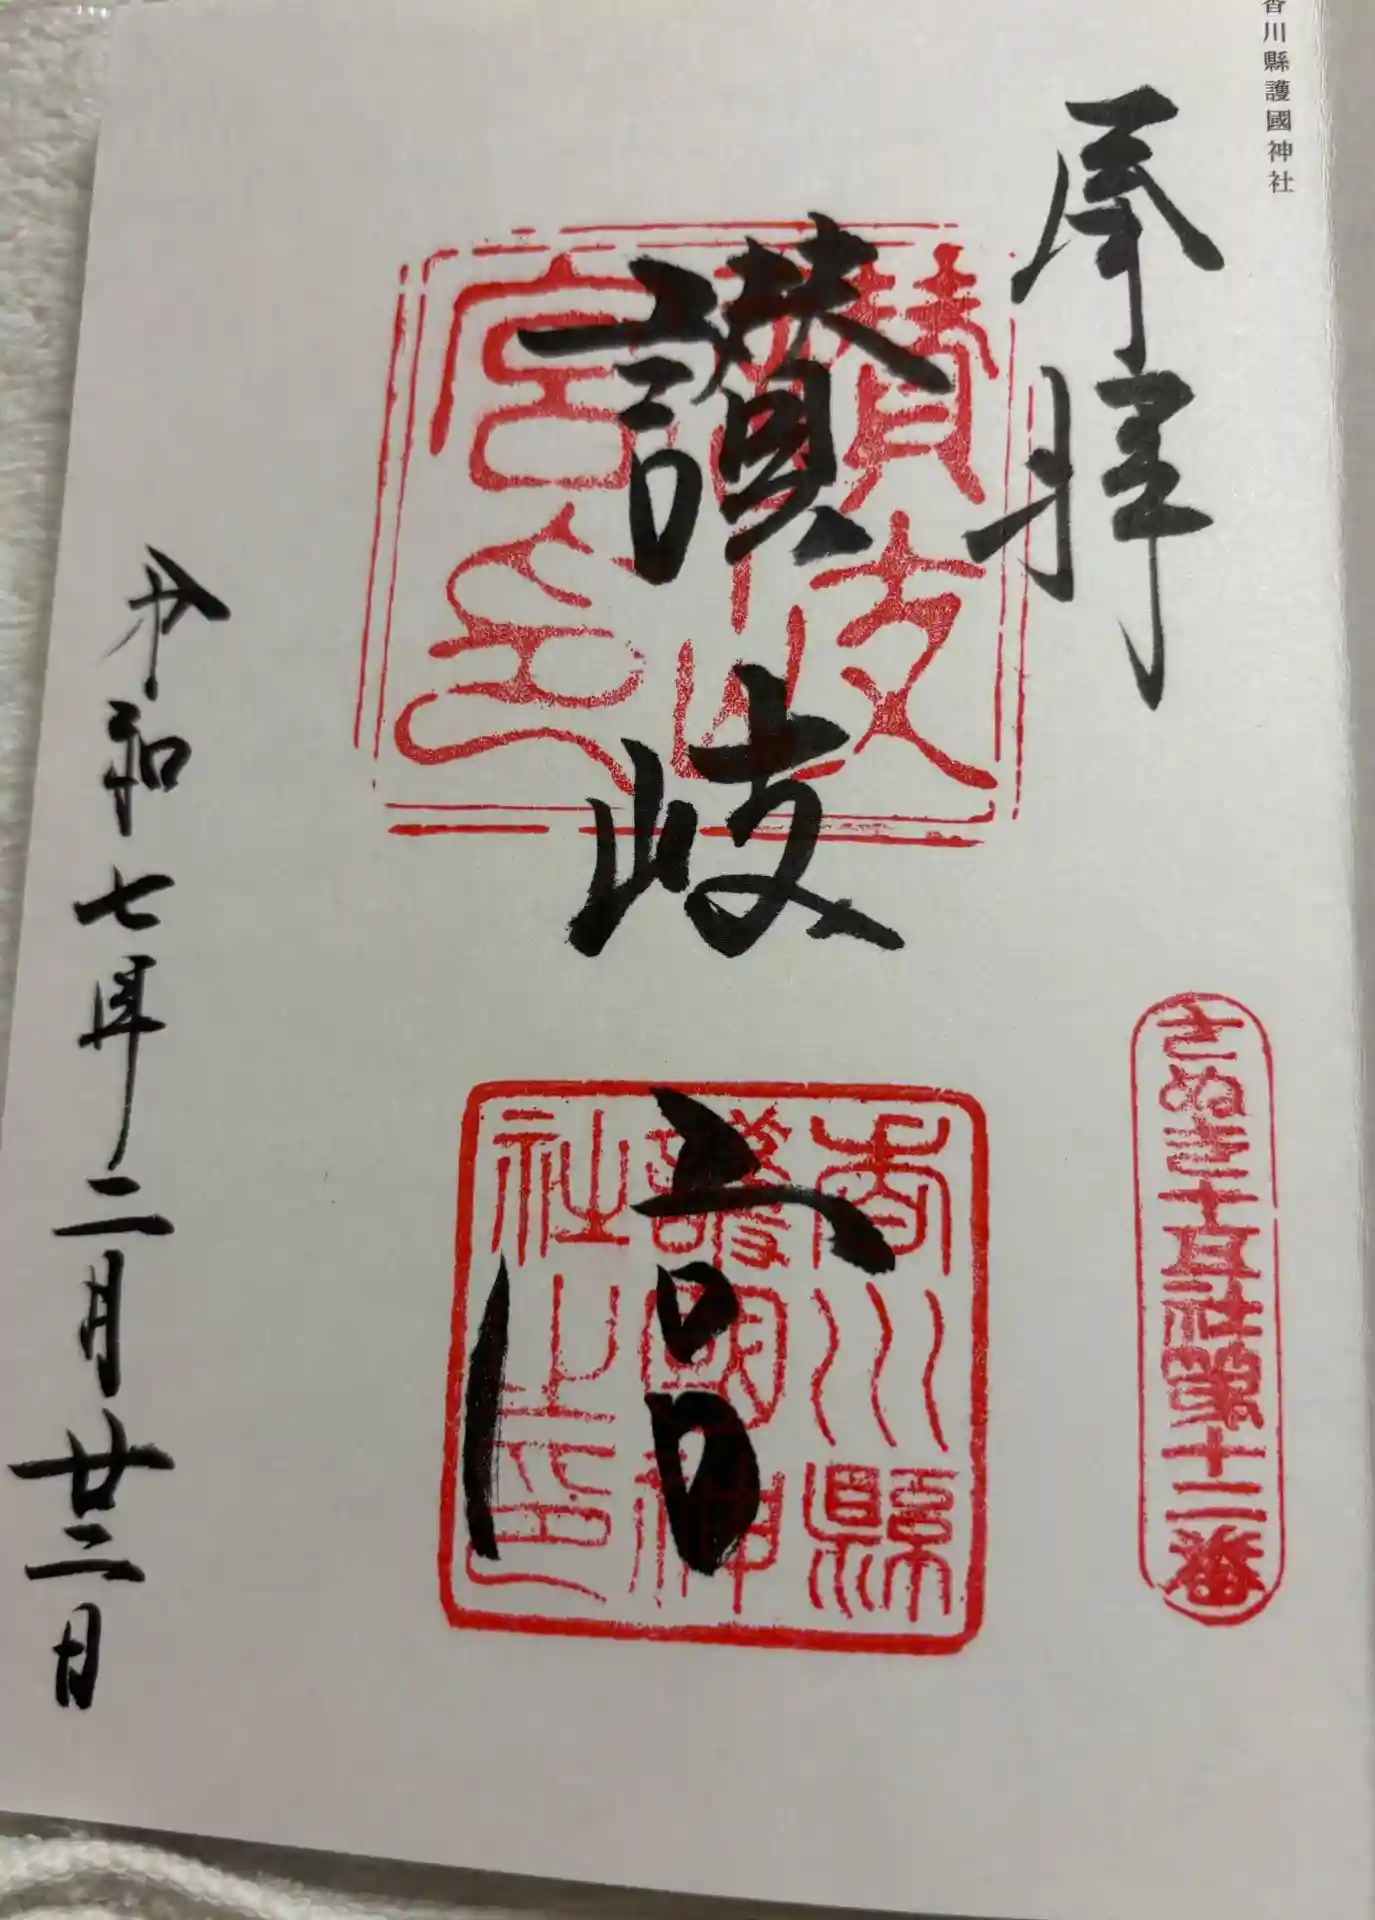 香川縣護國神社
奉拝
讃岐宮
讃岐宮印
さぬき十五社第十二番
香川縣護國神社之印
令和七年二月廿二日